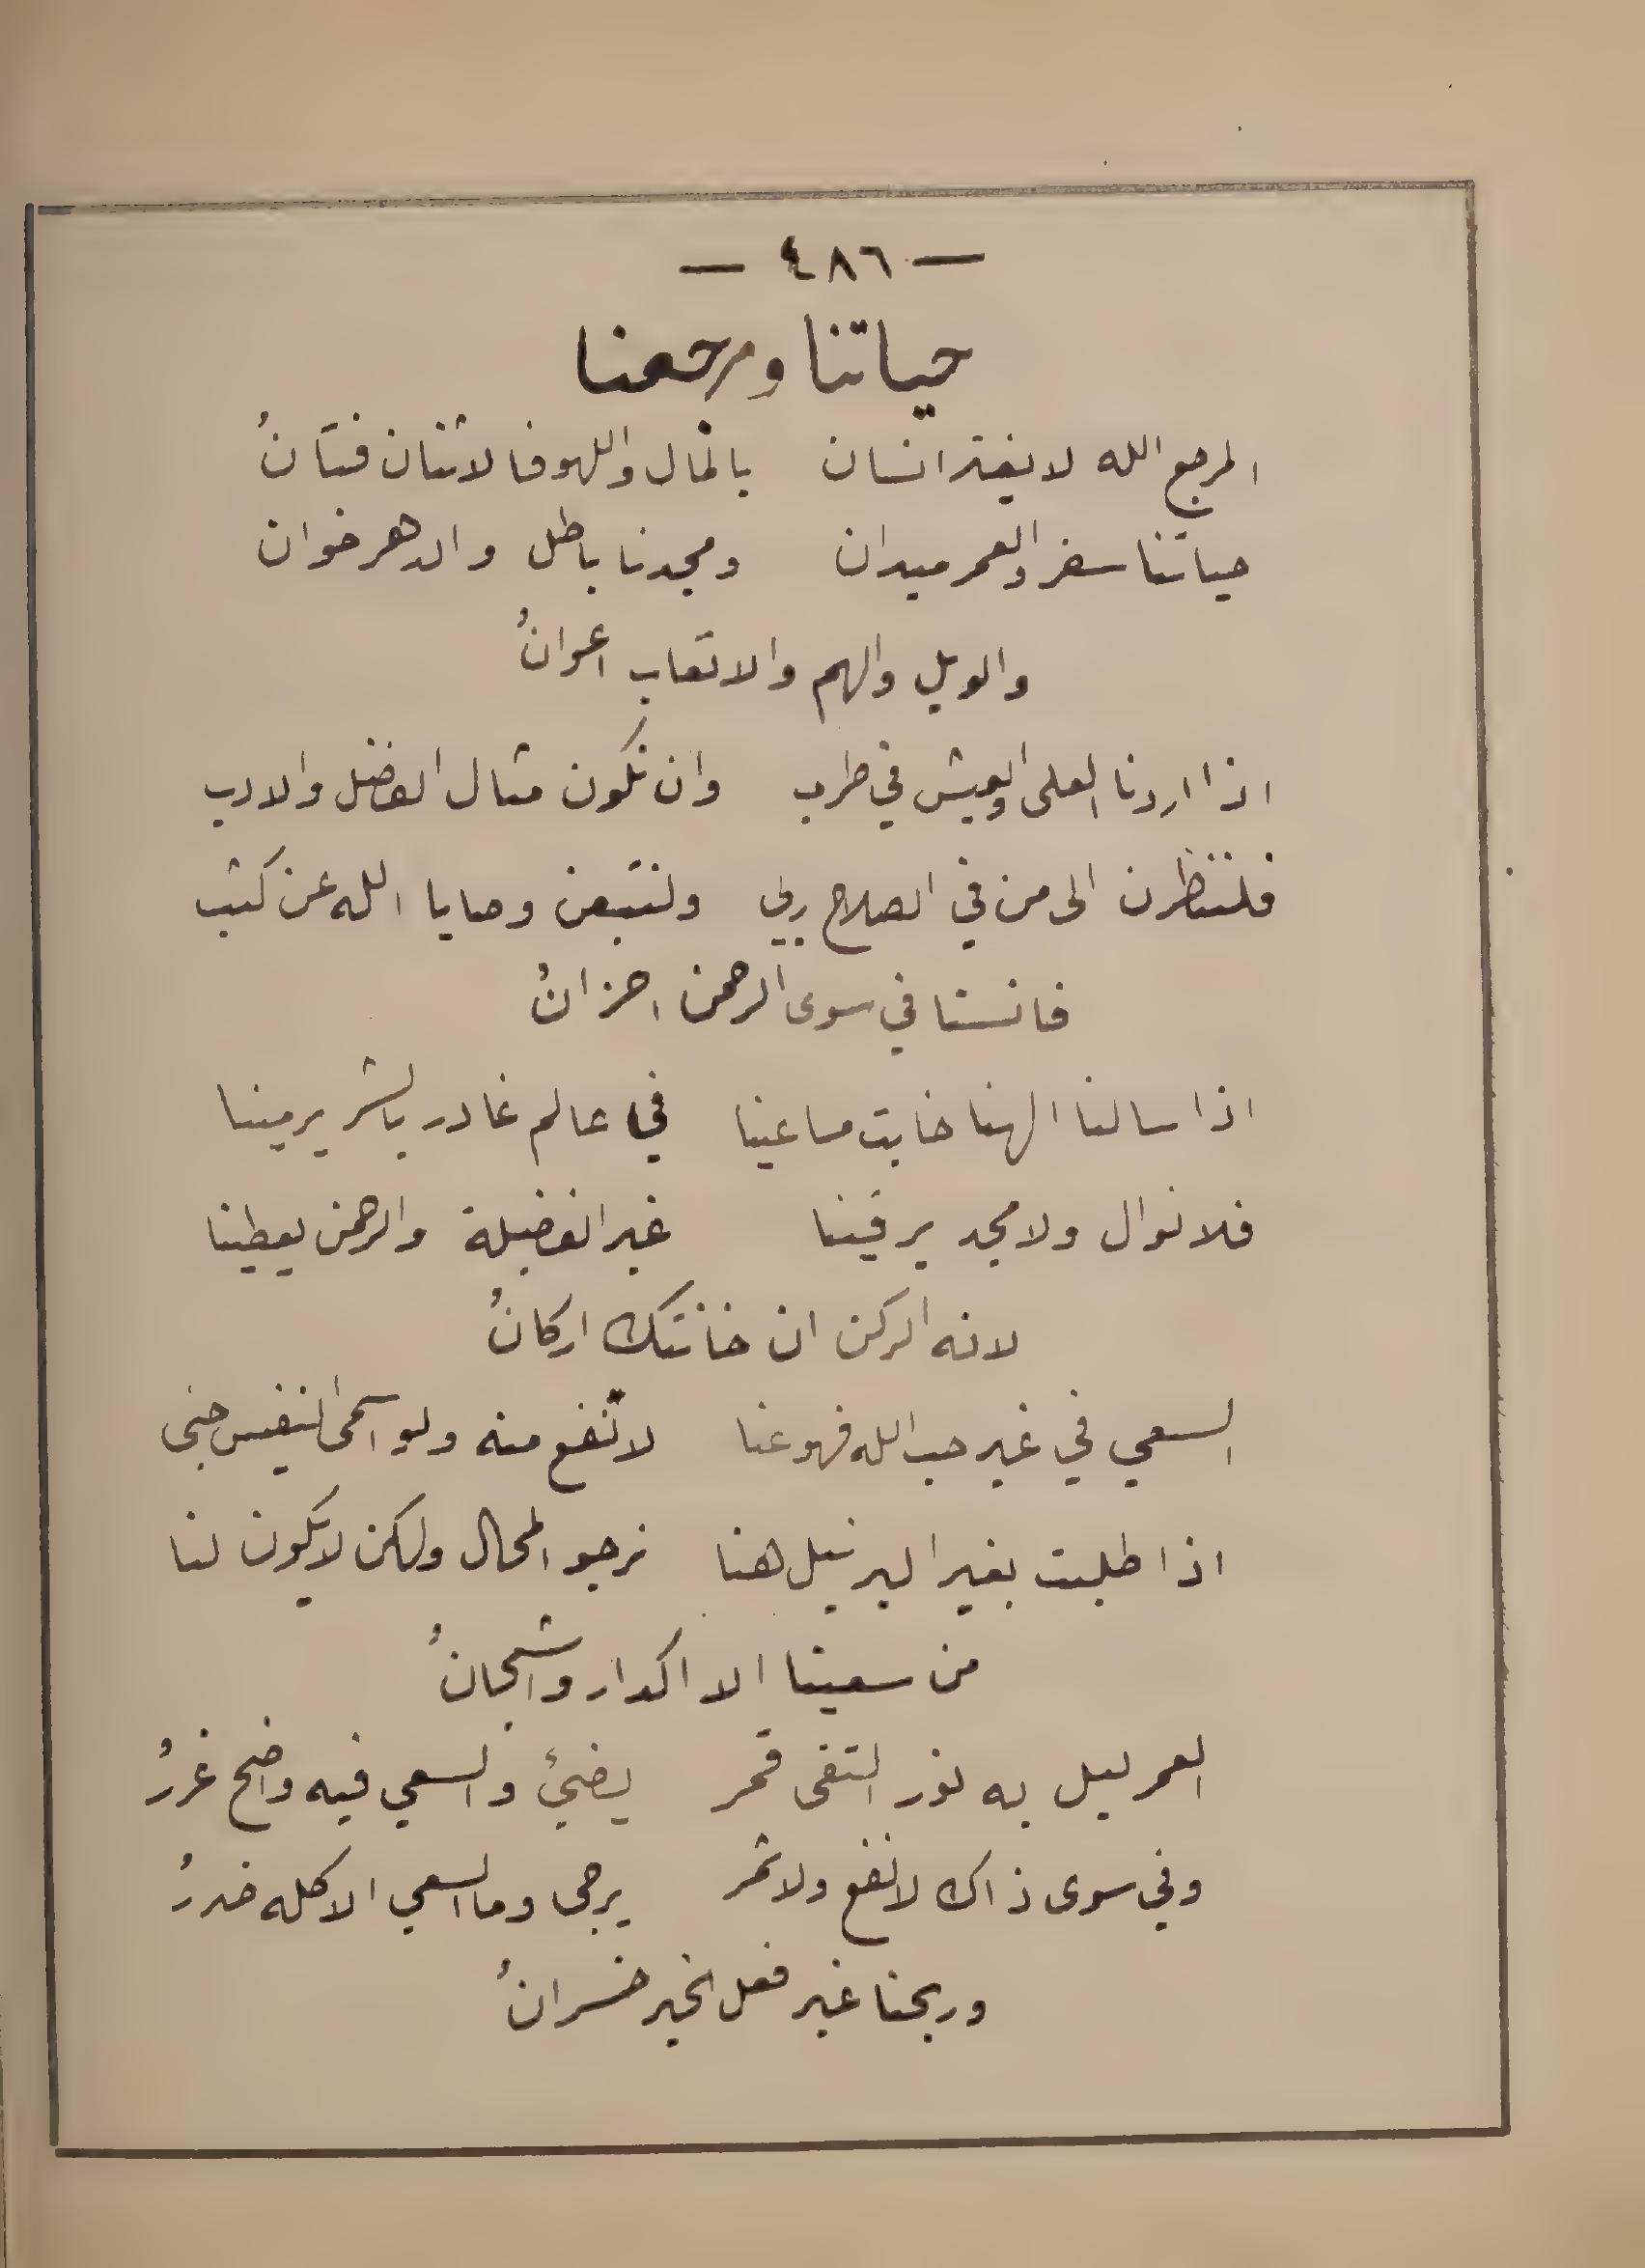 — ٤٨٦ —
حياتنا ومرجعنا
المرجع الله لا يغتر انسان بالمال واللهو فالاثنان فتانُ
حياتنا سفر والعمر ميدان ومجدنا باطل والدهر خوان
والويل والهم والاتعاب اعوانُ
اذا اردنا العلى والعيش في طرب وان نكون مثال الفضل والادب
فلننظرن الى من في الصلاح ربي ولنتبعن وصايا الله عن كثب
فانسنا في سوى الرحمن احزانُ
اذا سالنا الهنا خابت مساعينا في عالم غادر بالشر يرمينا
فلا نوال ولا مجد يرقينا غير الفضيلة والرحمن يعطينا
لانه الركن ان خانتك اركانُ
السعي في غير حب الله فهو عنا لا نفع منه ولو اسمى النفيس جنى
اذا طلبت بغير البر نيل هنا نرجو المحال ولكن لا يكون لنا
من سعينا الا اكدار واشجانُ
العمر ليل به نور التقى قمر يضيئ والسعي فيه واضح غررُ
وفي سوى ذاك لا نفع ولا ثمر يرجى وما السعي الا كله ضررُ
وربحنا غير فعل الخير خسرانُ